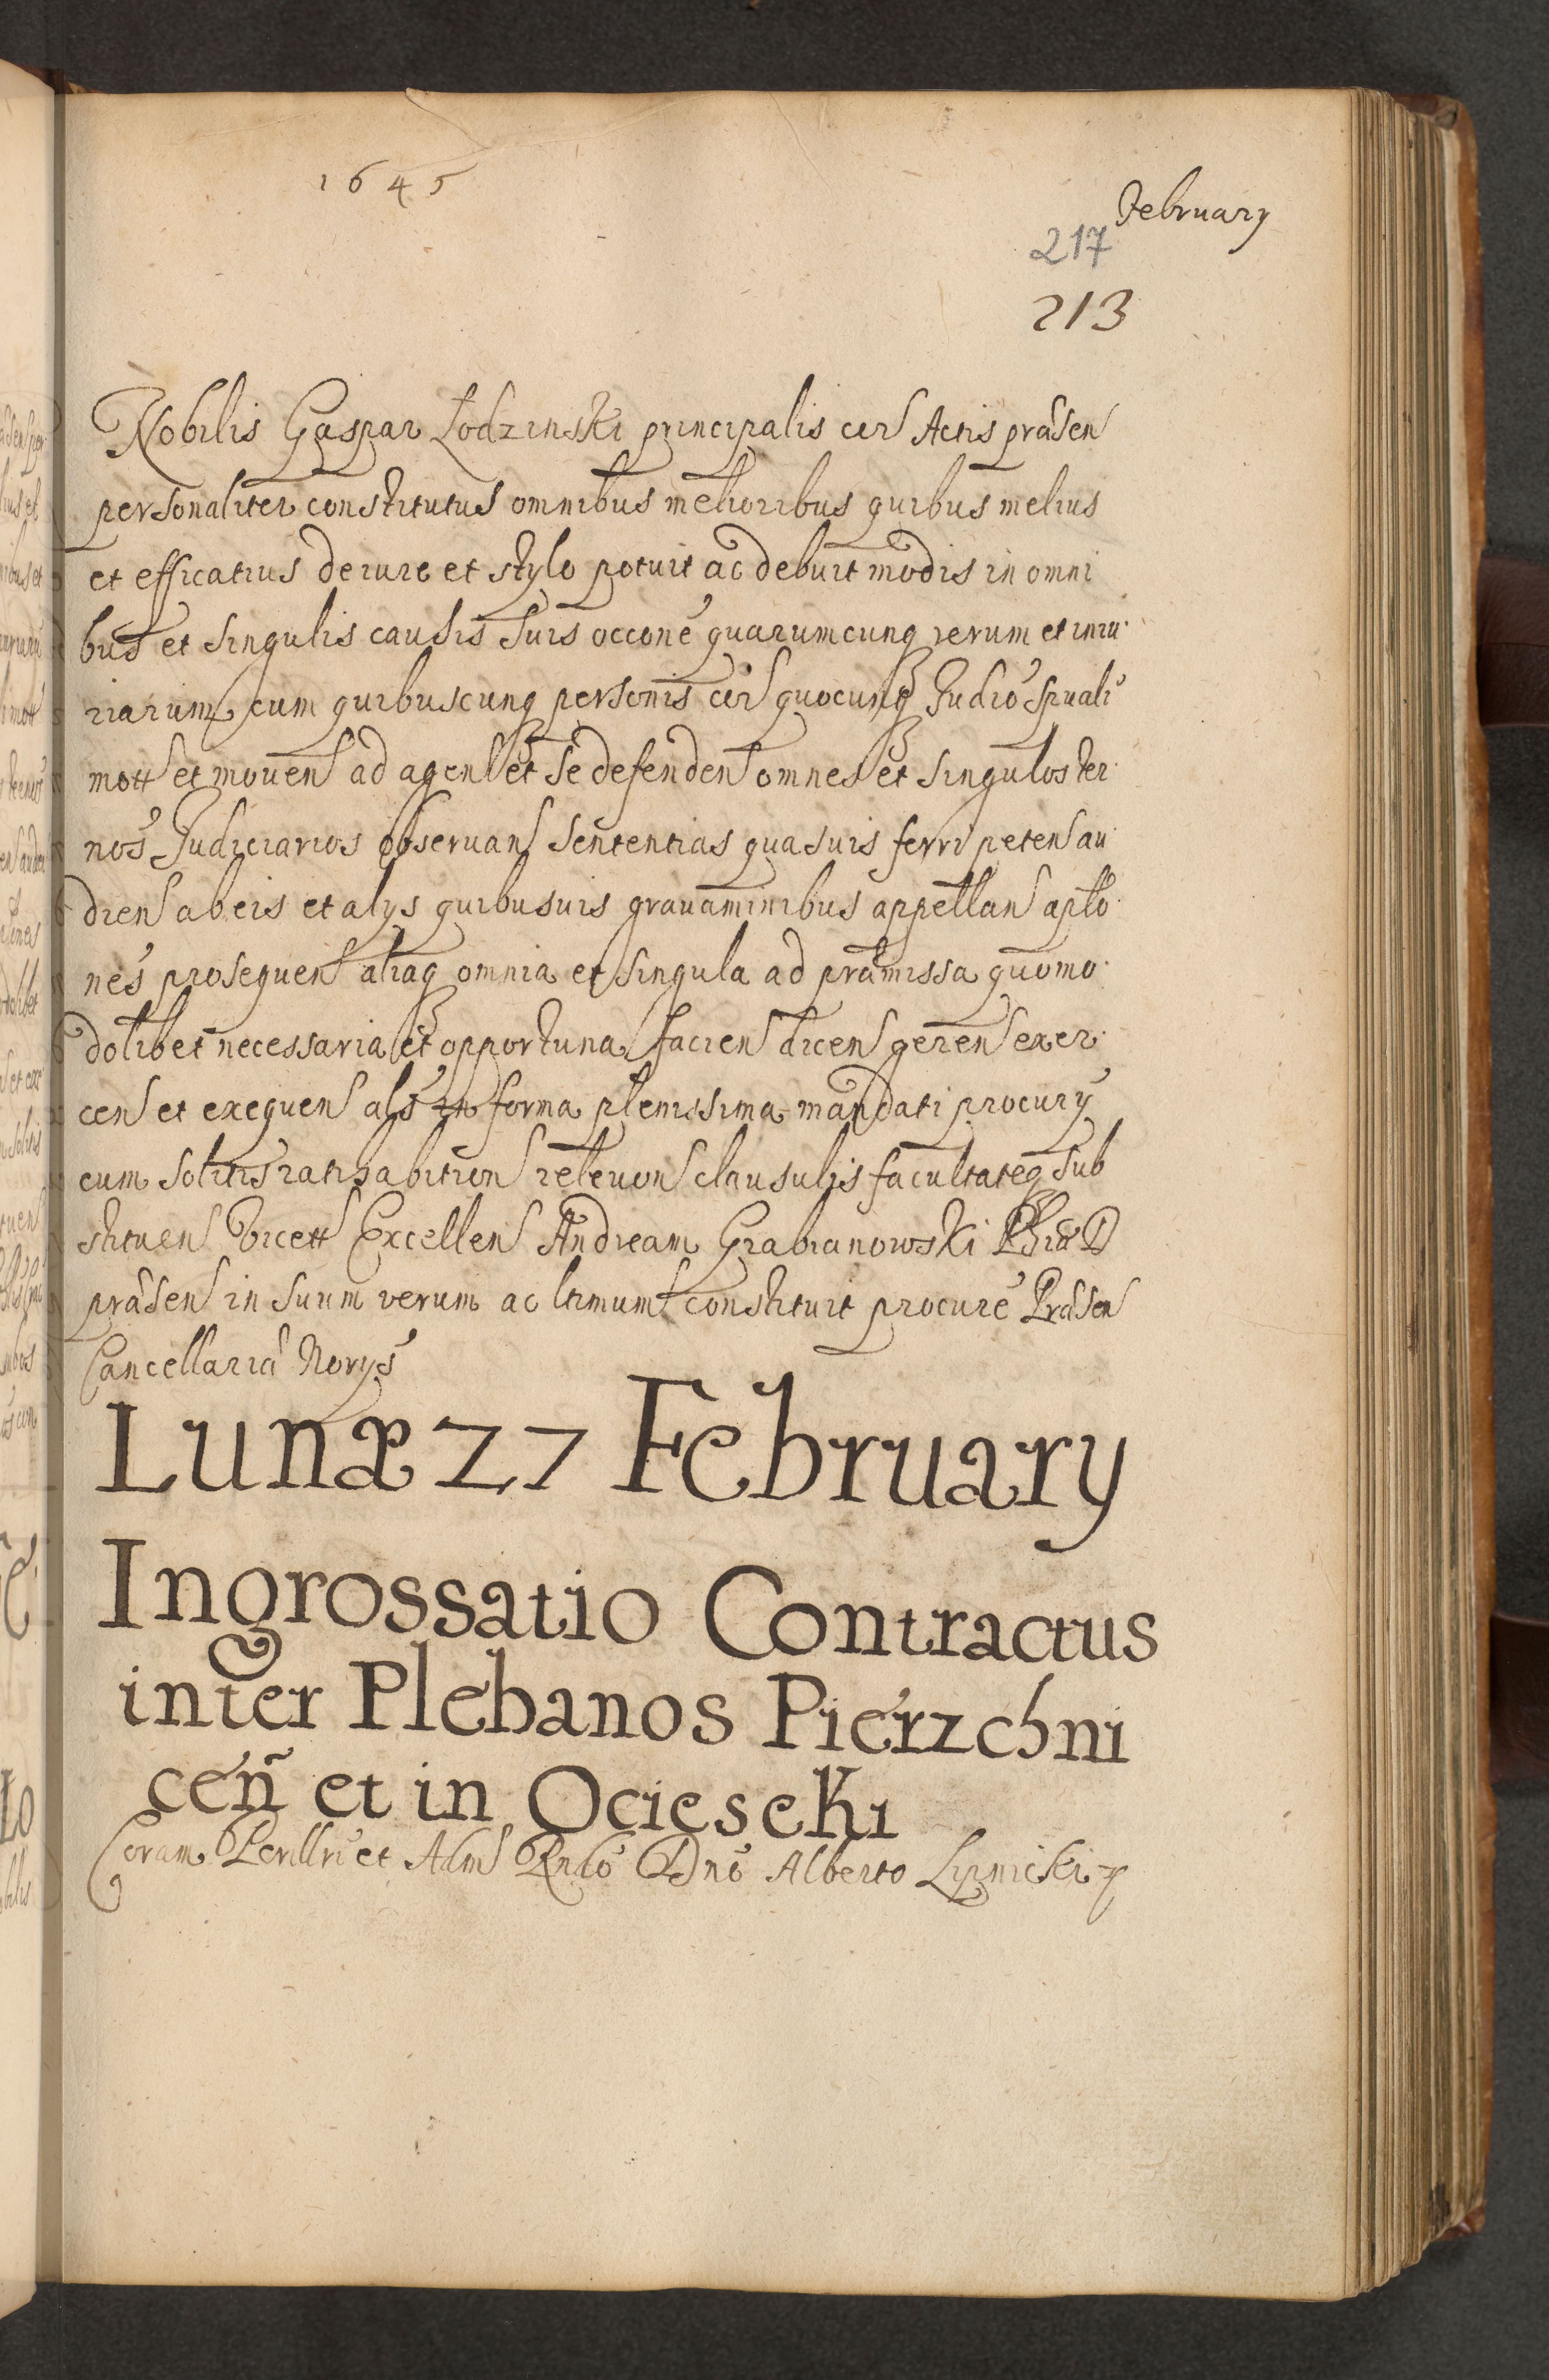 1645
February
217
213
Nobilis Gaspar Łodzinski principalis cor Actis præsen
personaliter constitutus omnibus melioribus quibus melius
et efficatius de iure et stylo potuit ac debuit modis in omni
bus et singulis causis suis occone quarumcunq rerum et iniu
riarum cum quibuscunq personis cor quocunq Judio spuali
mott et mouen ad agen et se defenden omnes et singulos ter
nos Judiciarios obseruan sententias quasuis ferri peten au
dien ab eis et alys quibusuis grauaminibus appellan aplo
nes prosequen aliaq omnia et singula ad præmissa quomo
dolibet necessaria et opportuna facien dicen geren exer
cen et exequen als in forma plenissima mandati procury
cum solitis ratihabition releuon clausulis facultateq sub
stituen Vicett Excellen Andream Grabianowski Phiæ D
præsen in suum verum ac ltimum constituit procure Præsen
Cancellariæ Norys
Lunæ 27 February
Ingrossatio Contractus
inter Plebanos Pierzchni
ceñ et in Ocieseki
Coram Perillri et Adm Rndo Dno Alberto Lipnicki